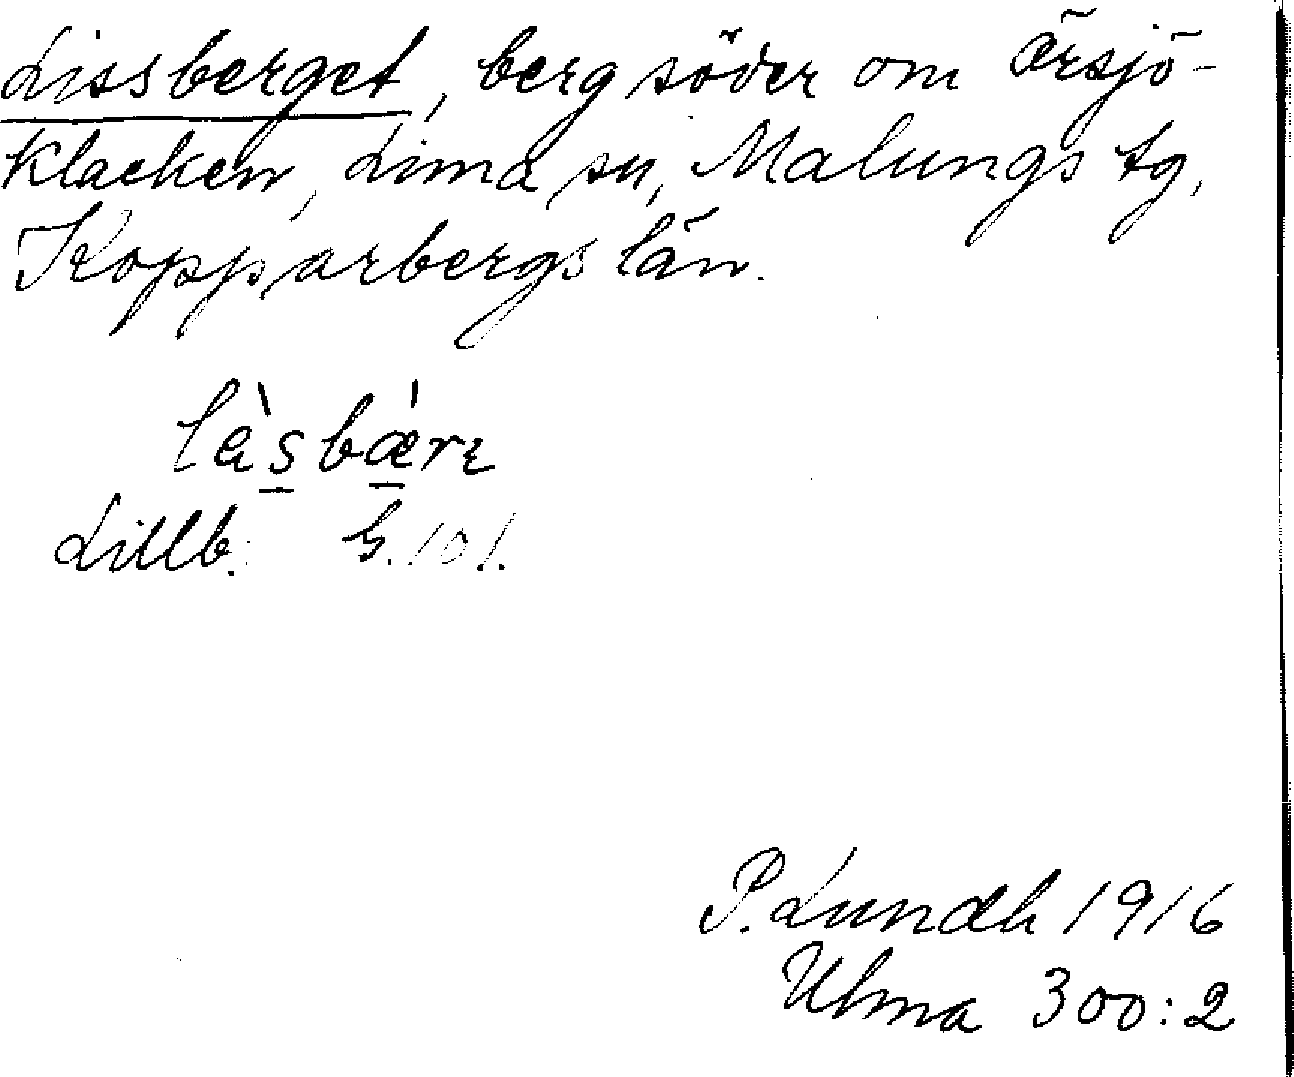 Lissberget, berg söder om Ärsjö-
klacken, Lima sn, Malungs tg,
Kopparbergs län.
làsbærɩ
Lillb. G.101.
P. Lundh 1916
Ulma 300:2